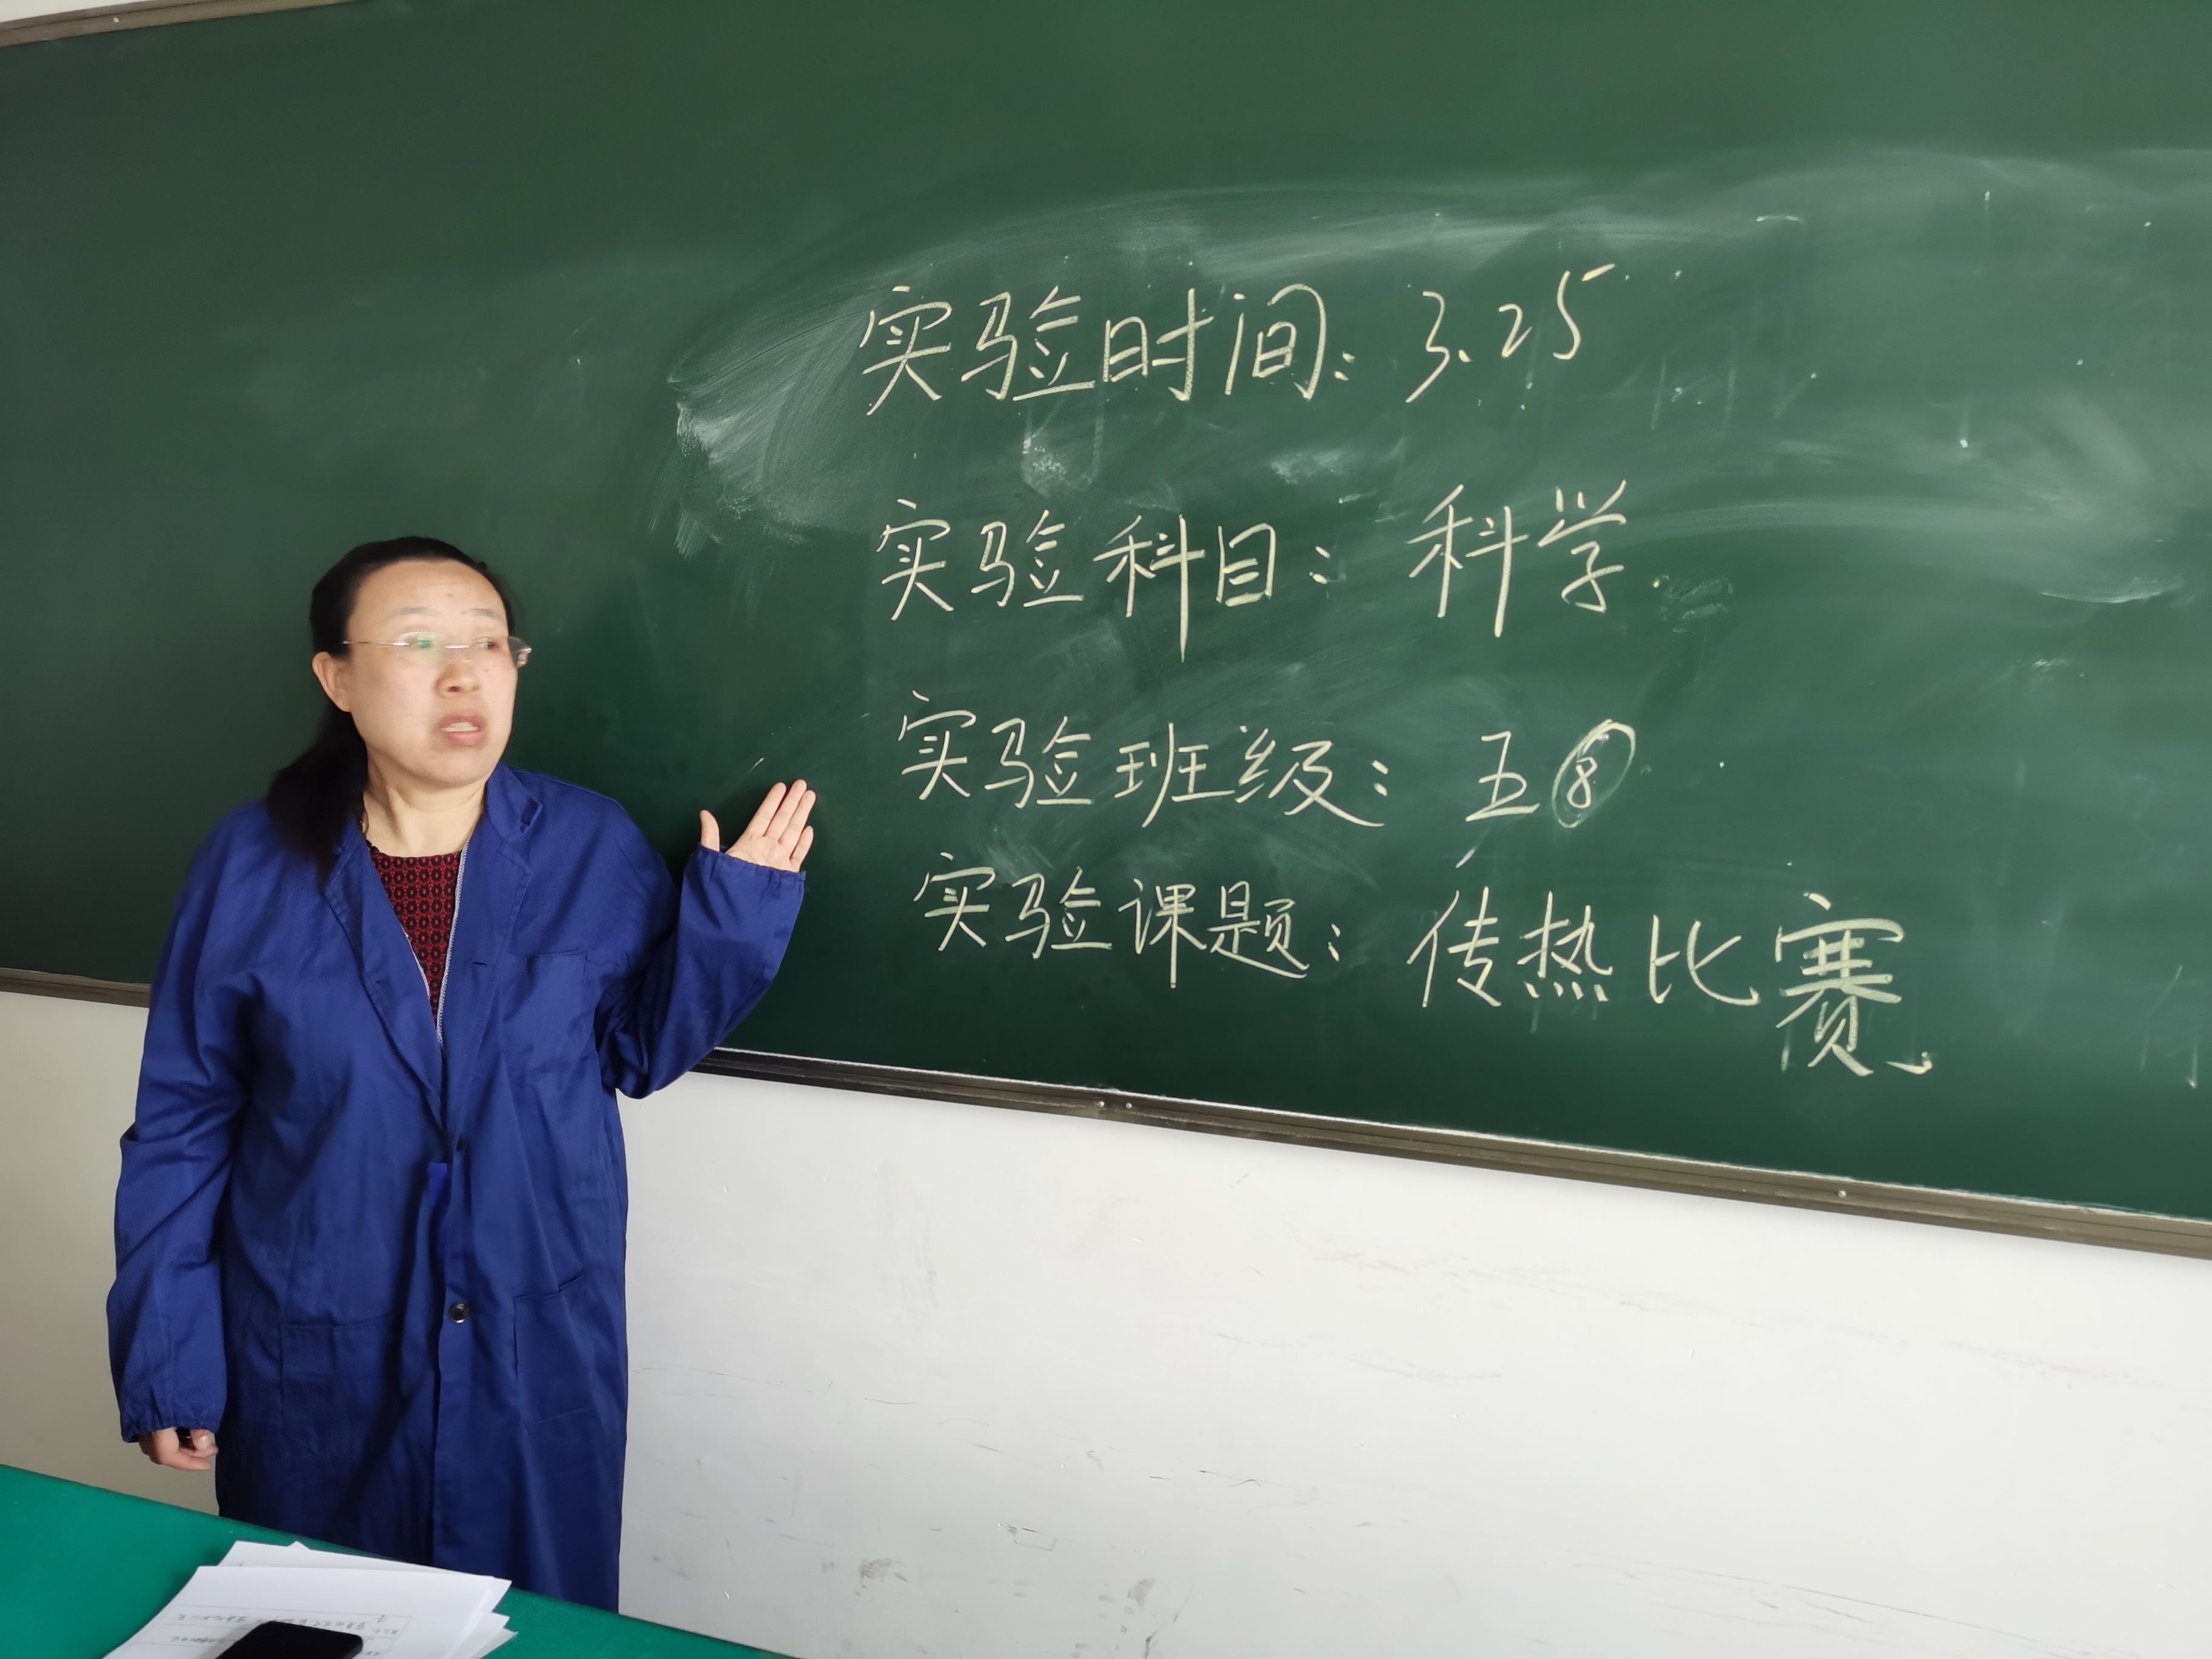 实验时间：3.25
实验科目：科学
实验班级：五⑧
实验课题：传热比赛